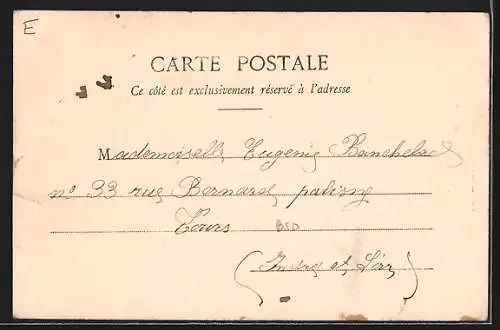 E
CARTE POSTALE
Ce côté est exclusivement réservé à l'adresse
Mademoiselle Eugenie
n° 33 rue Bernard palissy
Tours BSD
(Indre et Loir)